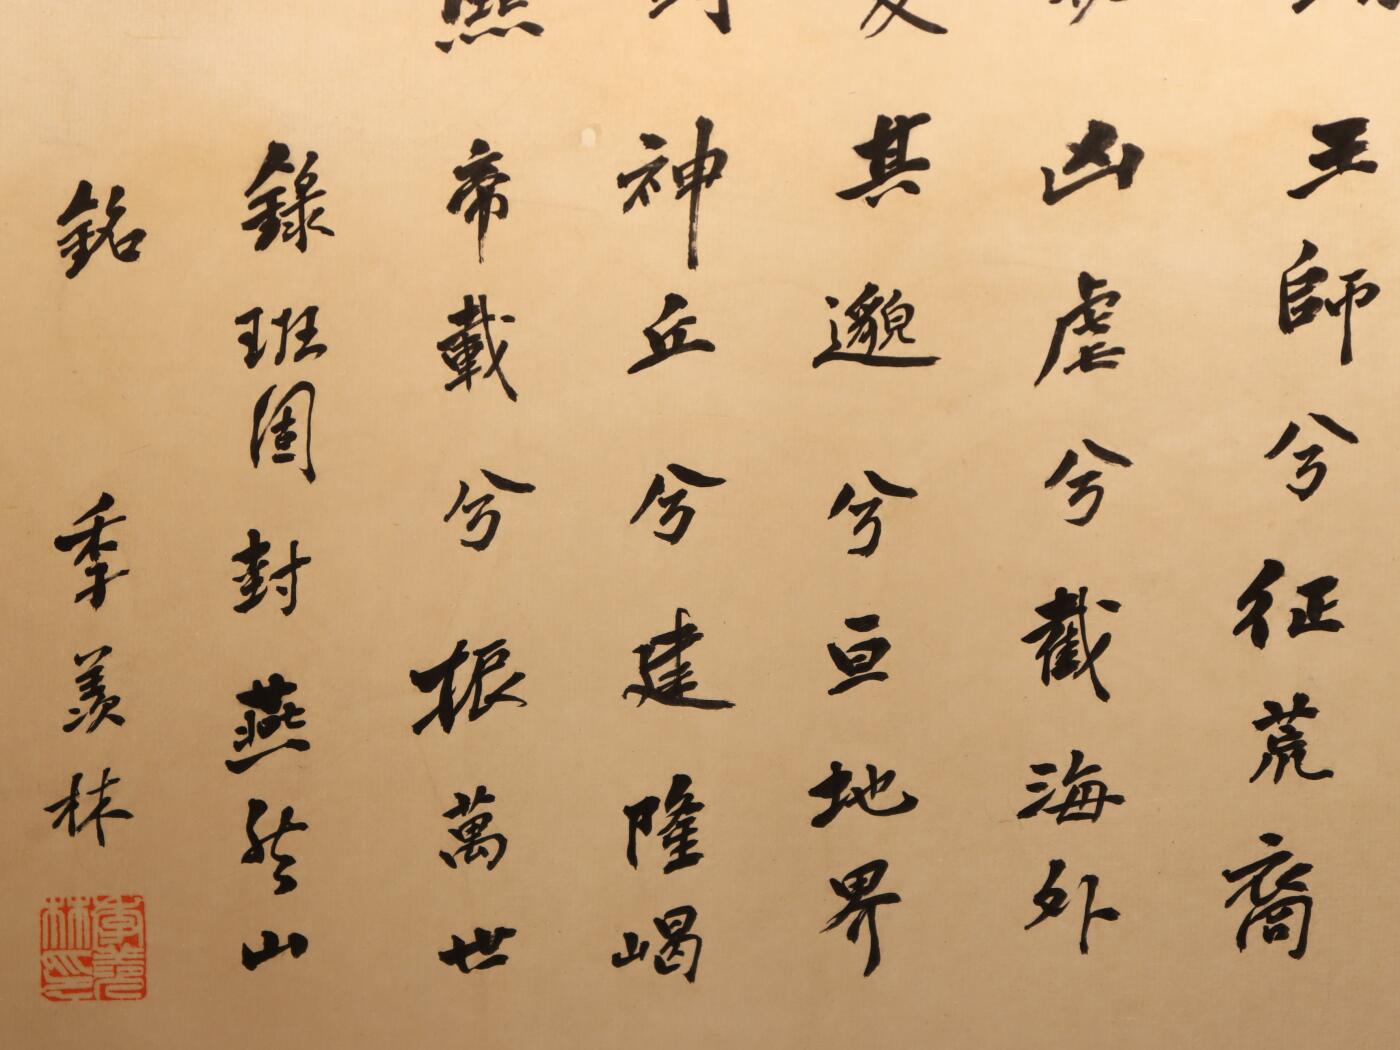 王師兮征荒裔
凶虐兮截海外
其邈兮亘地界
神丘兮建隆嵑
帝載兮振萬世
錄班固封燕然山
銘 季羨林
季羨林印